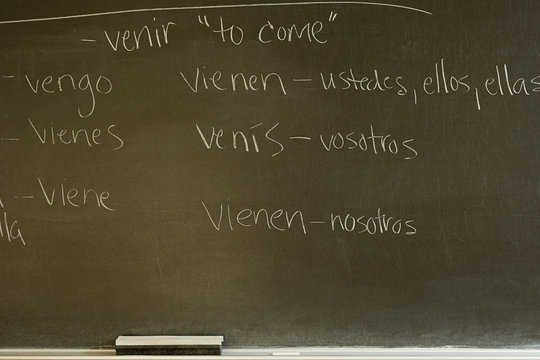 - venir "to come"
- vengo vienen - ustedes, ellos, ellas
- vienes venís - vosotros
- viene vienen - nosotros
lla